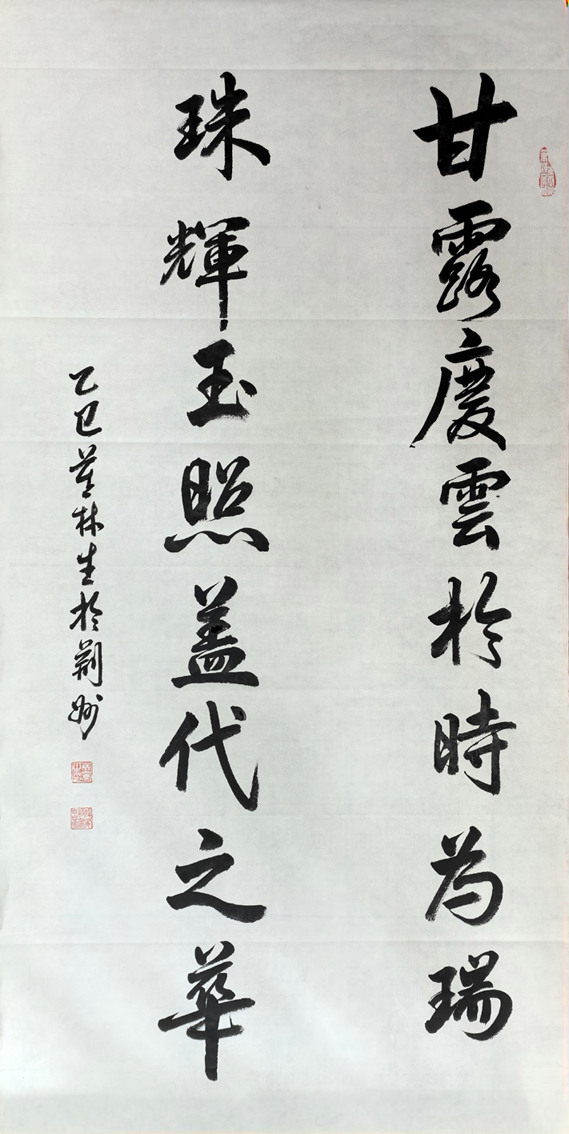 甘露慶雲於時為瑞
珠輝玉照盖代之華
乙巳 林生於荆州